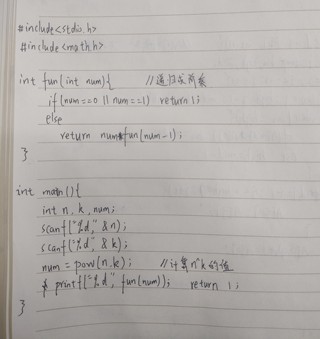 #include<stdio.h>
#include<math.h>
int fun(int num){ //递归求阶乘
if(num==0 || num==1) return 1;
else
return num*fun(num-1);
}
int math(){
int n, k, num;
scanf("%d", &n);
scanf("%d", &k);
num = pow(n,k); //计算n^k的值
printf("%d", fun(num)); return 1;
}